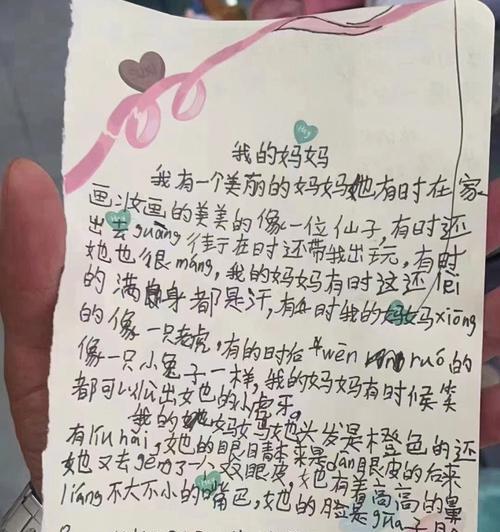 我的妈妈
我有一个美丽的妈妈她,有时在家
画汝画的美美的像一位仙子,有时还
出去guāng 街于在时还带我出玩,有时
她也很máng,我的妈妈有时这还lèi
的满身都是汗,有时我的妈妈xiōng
的像一只老虎,有的时后wēn ruó的
像一只小兔子一样,我的妈妈有时候笑
都可以出她的小虎牙。
我的妈妈她头发是橙色的还
有liu hai,她的眼睛本来是dān眼皮的后来
她又去gē了一个双眼皮,她也有着高高的鼻
liáng不大不小的嘴巴,她的脸是guā子